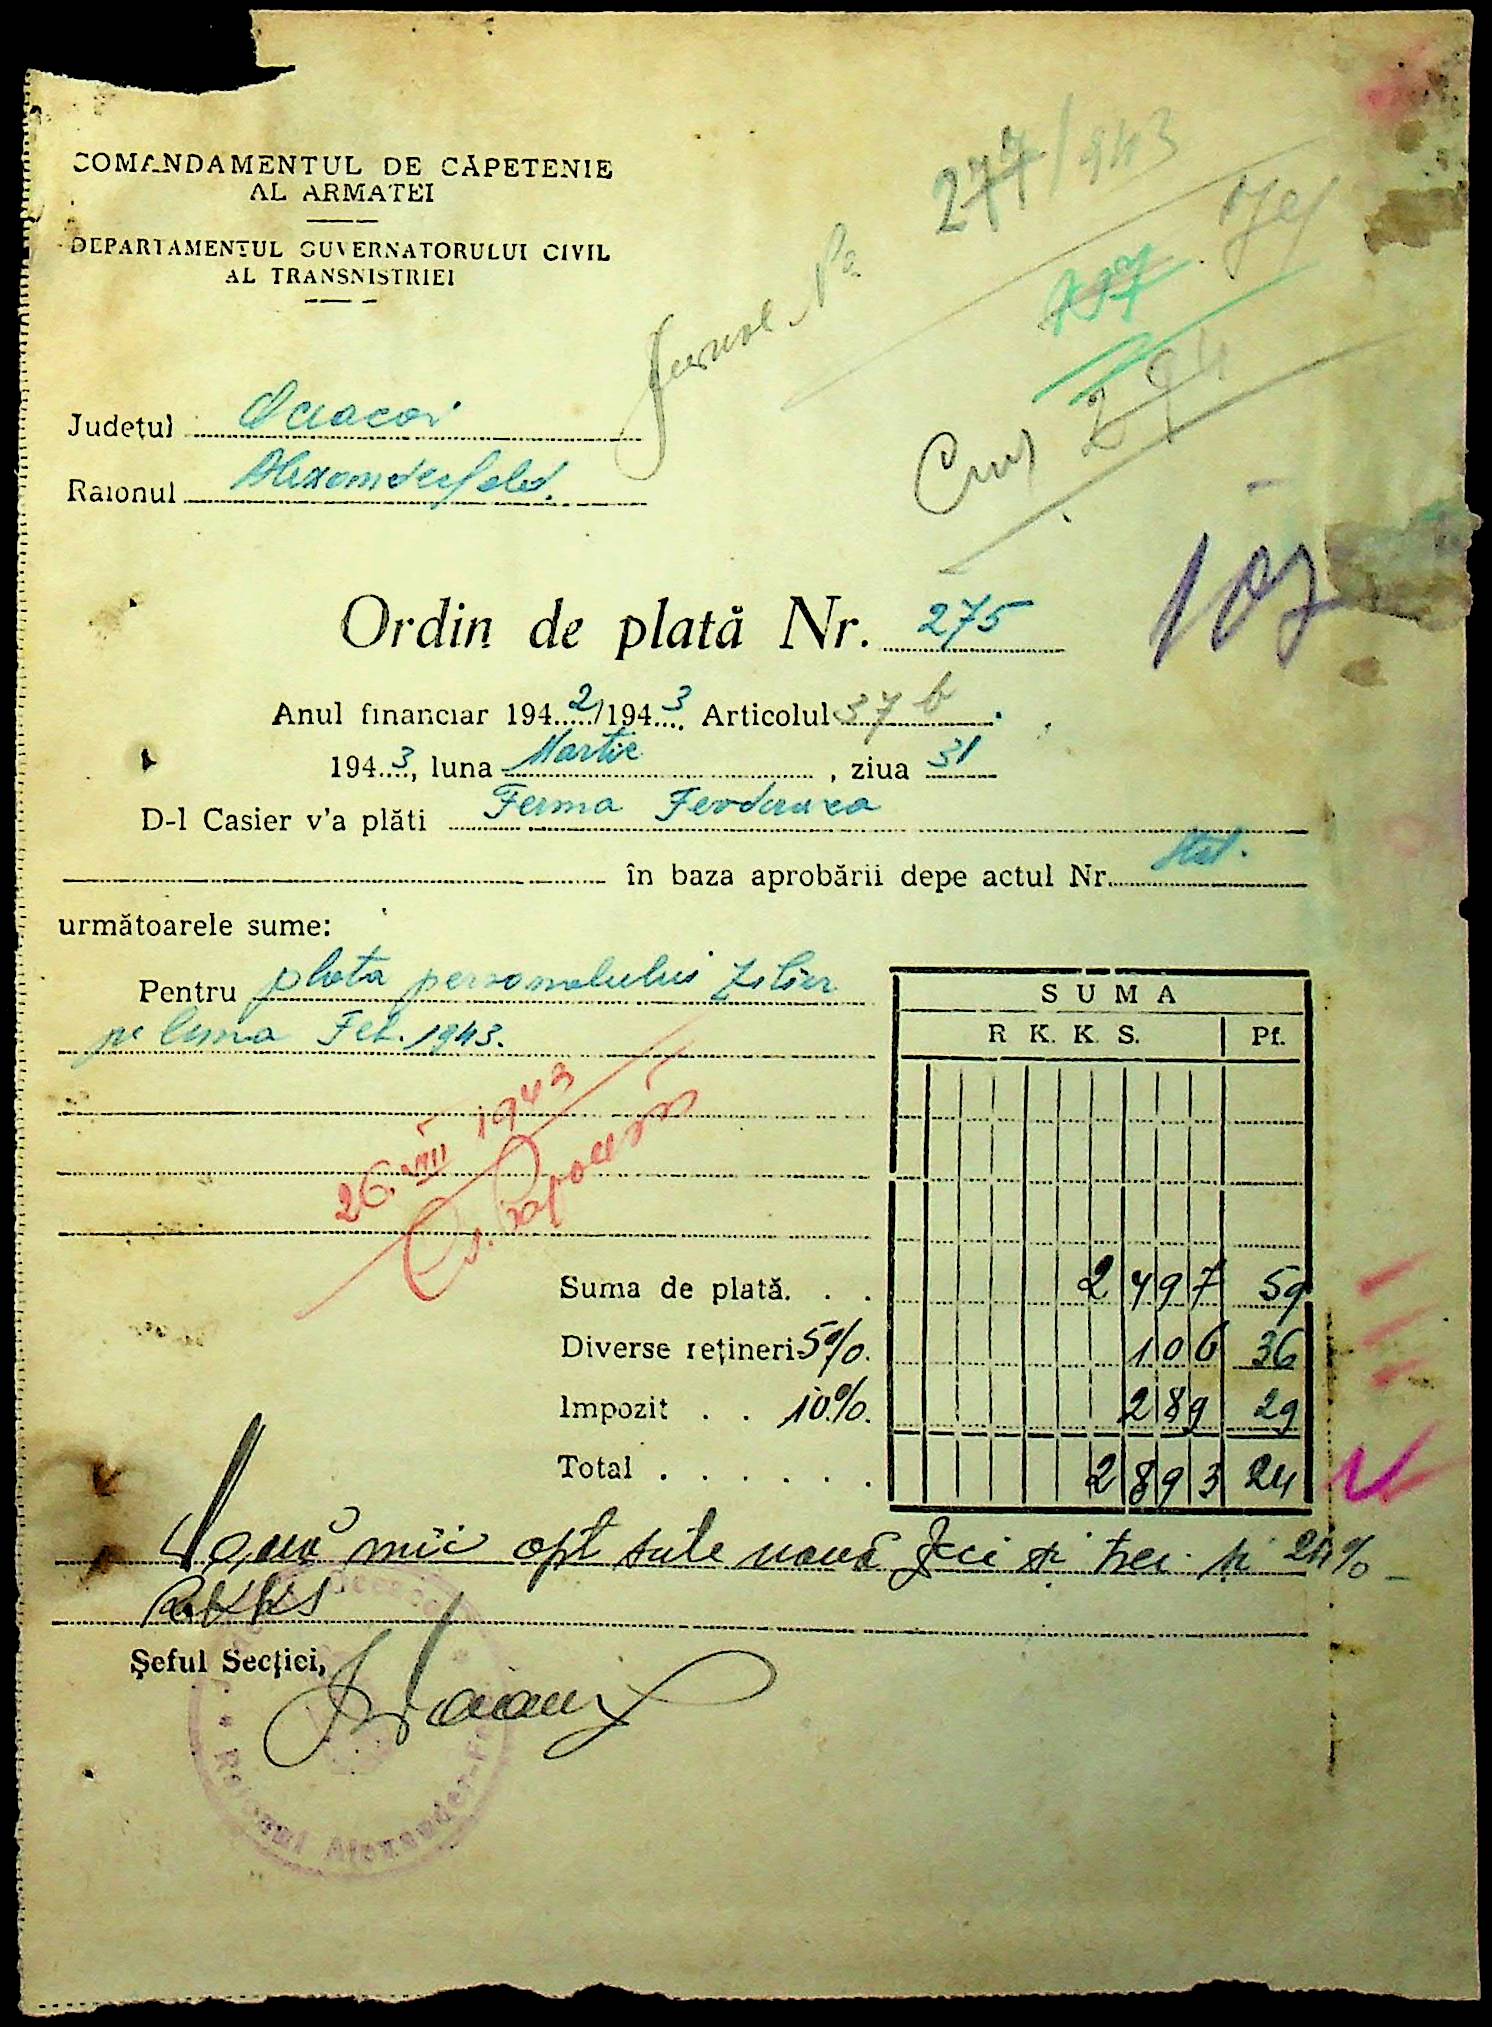 COMANDAMENTUL DE CĂPETENIE
AL ARMATEI
DEPARTAMENTUL GUVERNATORULUI CIVIL
AL TRANSNISTRIEI
277/943
Jurnal No
Județul Oceacov
Raionul Alexanderfeld.
294
107
Ordin de plată Nr. 275
Anul financiar 1942/1943 Articolul 37 b
1943, luna Martie, ziua 31
D-l Casier v'a plăti Ferma
în baza aprobării depe actul Nr. Stat.
următoarele sume:
Pentru plata personalului zilier
pe luna Feb. 1943.
SUMA
R. K. K. S. Pf.
26. VIII 1943
Suma de plată. . . 2497 59
Diverse rețineri 5%. 106 36
Impozit . . 10%. 289 29
Total . . . . . . 2893 24
Două mii opt sute nouă zeci și trei și 24%
RKKS
Șeful Secției,
Raionul Alexander-F